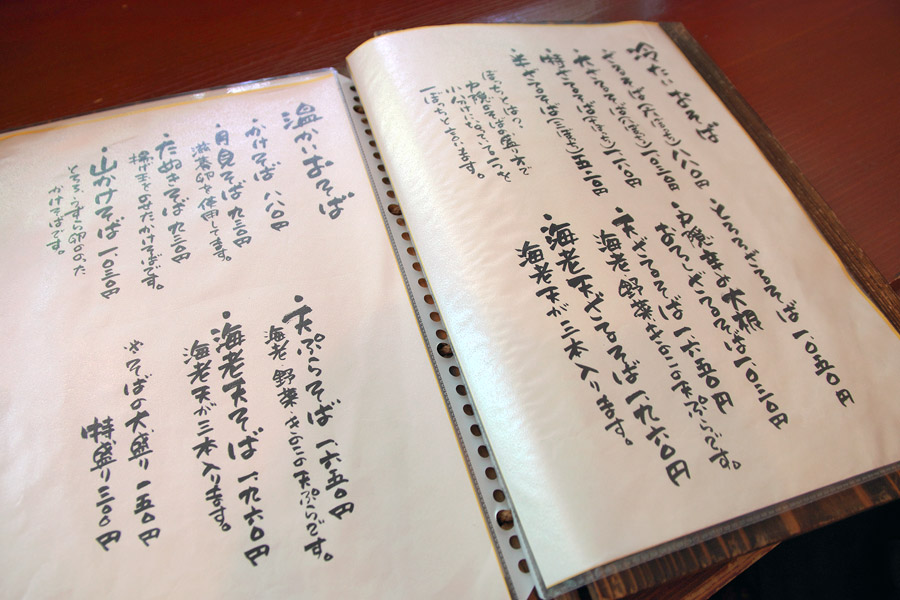 冷たいおそば
ざるそば(大ざる) 八八〇円
大ざるそば(大ざる) 一、〇三〇円
特ざるそば 一、一八〇円
半ざるそば 五二〇円
ぼっちとは、
一ぼっちと言います。
とろろざるそば 一、〇五〇円
おろしざるそば 一、〇三〇円
天ざるそば 一、六五〇円
海老、野菜、きのこの天ぷらです。
海老天ざるそば 一、九六〇円
海老天が三本入ります。
温かいおそば
かけそば 八八〇円
月見そば 九三〇円
滋養卵を使用してます。
たぬきそば 九三〇円
揚げ玉をのせたかけそばです。
山かけそば 一、〇三〇円
とろろ、うずら卵ののった
かけそばです。
天ぷらそば 一、六五〇円
海老、野菜、きのこの天ぷらです。
海老天そば 一、九六〇円
海老天が三本入ります。
そばの大盛り 一五〇円
特盛り 三〇〇円